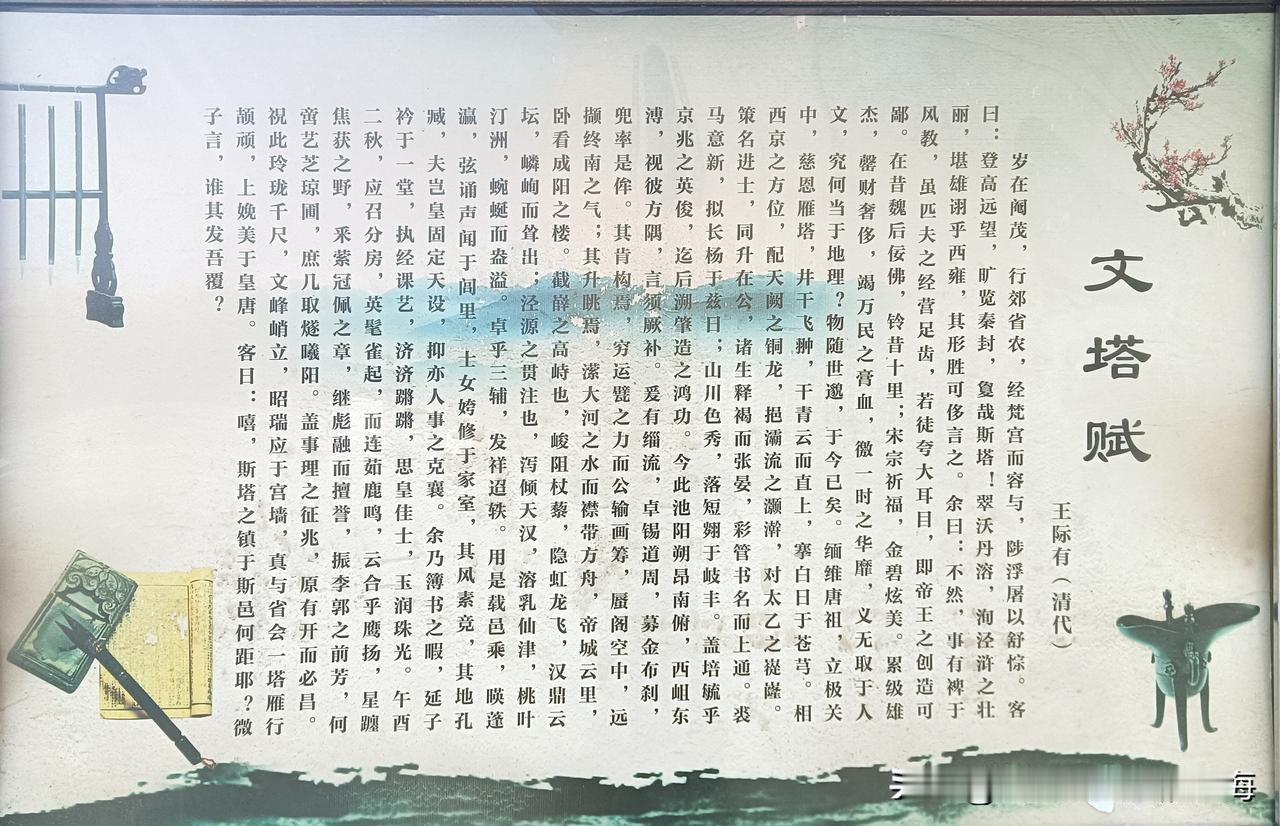 文塔赋
王际有（清代）
岁在阉茂，行郊省农，经梵宫而容与，陟浮屠以舒悰。客
曰：登高远望，旷览秦封，敻哉斯塔！翠沃丹溶，洵泾浒之壮
丽，堪雄诩乎西雍，其形胜可侈言之。余曰：不然，事有裨于
风教，虽匹夫之经营足齿，若徒夸大耳目，即帝王之创造可
鄙。在昔魏后佞佛，铃昔十里；宋宗祈福，金碧炫美。累级雄
杰，罄财奢侈，竭万民之膏血，徼一时之华靡，义无取于人
文，究何当于地理？物随世邈，于今已矣。缅维唐祖，立极关
中，慈恩雁塔，井干飞翀，干青云而直上，搴白日于苍芎。相
西京之方位，配天阙之铜龙，挹灞流之灏澣，对太乙之嵷嶐。
策名进士，同升在公，诸生释褐而张晏，彩管书名而上通。裘
马意新，拟长杨于兹日；山川色秀，落短翙于岐丰。盖培毓乎
京兆之英俊，迄后溯肇造之鸿功。今此池阳朔昂南俯，西岨东
溥，视彼方隅，言须厥补。爰有缁流，卓锡道周，募金布刹，
兜率是侔。其肯构焉，穷运甓之力而公输画筹，蜃阁空中，远
撷终南之气；其升眺焉，潆大河之水而襟带方舟，帝城云里，
卧看成阳之楼。截嶭之高峙也，峻阻杖藜，隐虹龙飞，汉鼎云
坛，嶙峋而耸出；泾源之贯注也，泻倾天汉，溶乳仙津，桃叶
汀洲，蜿蜒而盎溢。卓乎三辅，发祥迢轶。用是载邑乘，暎蓬
瀛，弦诵声闻于闾里，士女姱修于家室，其风素竞，其地孔
臧，夫岂皇固定天设，抑亦人事之克襄。余乃簿书之暇，延子
衿于一堂，执经课艺，济济蹡蹡，思皇佳士，玉润珠光。午酉
二秋，应召分房，英髦雀起，而连茹鹿鸣，云合乎鹰扬，星躔
焦获之野，采萦冠佩之章，继彪融而擅誉，振李郭之前芳，何
啻艺芝琼圃，庶几取燧曦阳。盖事理之征兆，原有开而必昌。
祝此玲珑千尺，文峰峭立，昭瑞应于宫墙，真与省会一塔雁行
颉颃，上娩美于皇唐。客日：嘻，斯塔之镇于斯邑何距耶？微
子言，谁其发吾覆？